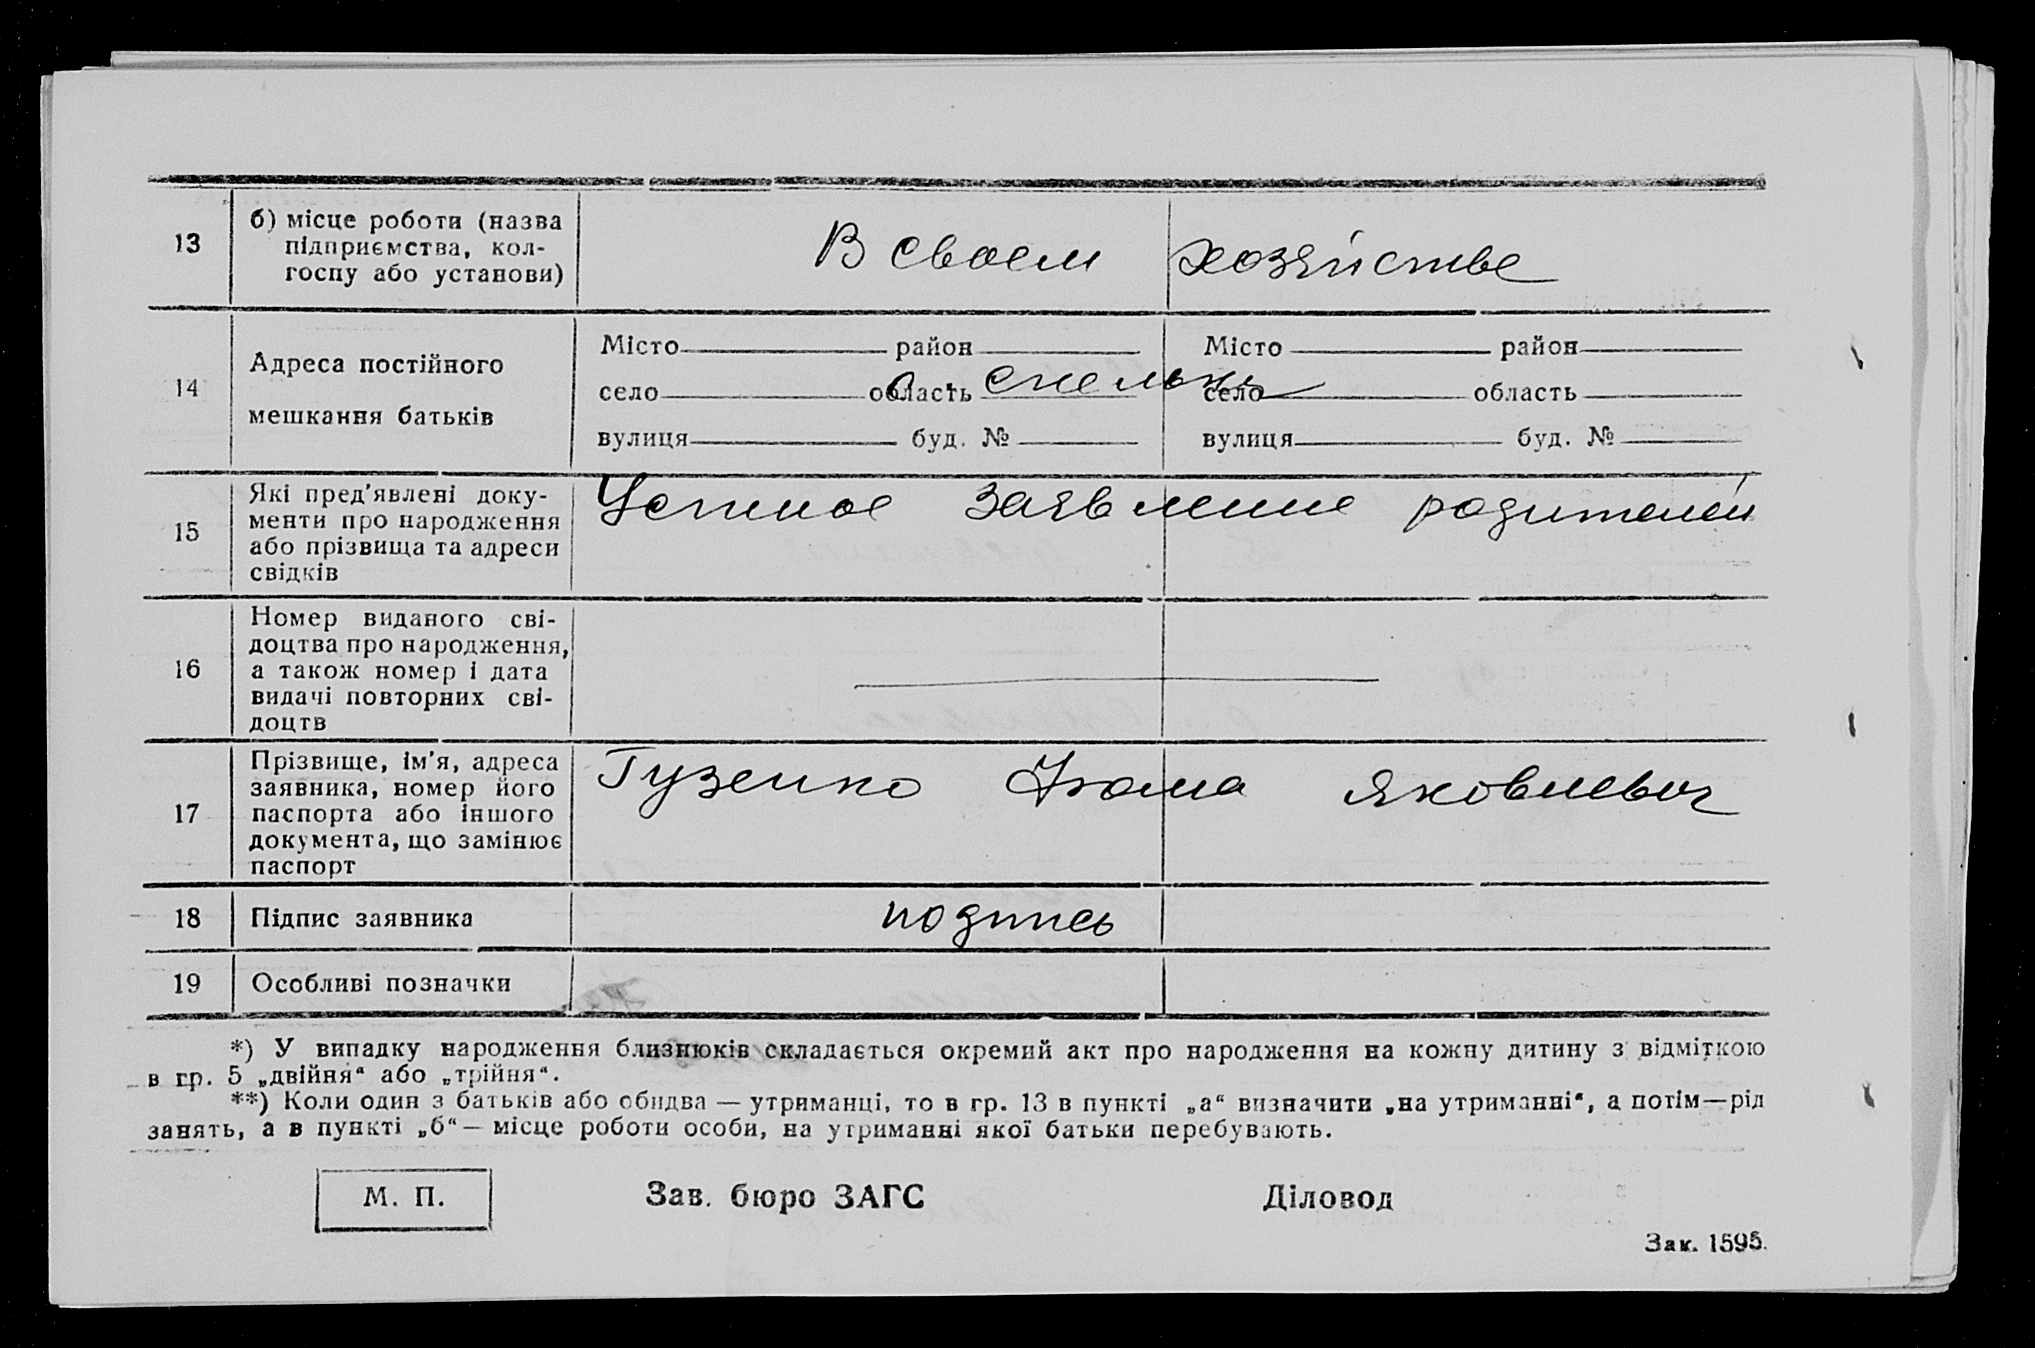 13
б) місце роботи (назва
підприємства, кол-
госпу або установи)
В своем хозяйстве
14
Адреса постійного
мешкання батьків
Місто район Місто район
село область село область
вулиця буд. № вулиця буд. №
15
Які пред'явлені доку-
менти про народження
або прізвища та адреси
свідків
Устное заявление родителей
16
Номер виданого сві-
доцтва про народження,
а також номер і дата
видачі повторних сві-
доцтв
17
Прізвище, ім'я, адреса
заявника, номер його
паспорта або іншого
документа, що замінює
паспорт
Гузенко Фома Яковлевич
18
Підпис заявника
подпись
19
Особливі позначки
*) У випадку народження близнюків складається окремий акт про народження на кожну дитину з відміткою
в гр. 5 „двійня“ або „трійня“.
**) Коли один з батьків або обидва — утриманці, то в гр. 13 в пункті „а“ визначити „на утриманні“, а потім—рід
занять, а в пункті „б“ — місце роботи особи, на утриманні якої батьки перебувають.
М. П.
Зав. бюро ЗАГС
Діловод
Зак. 1595.